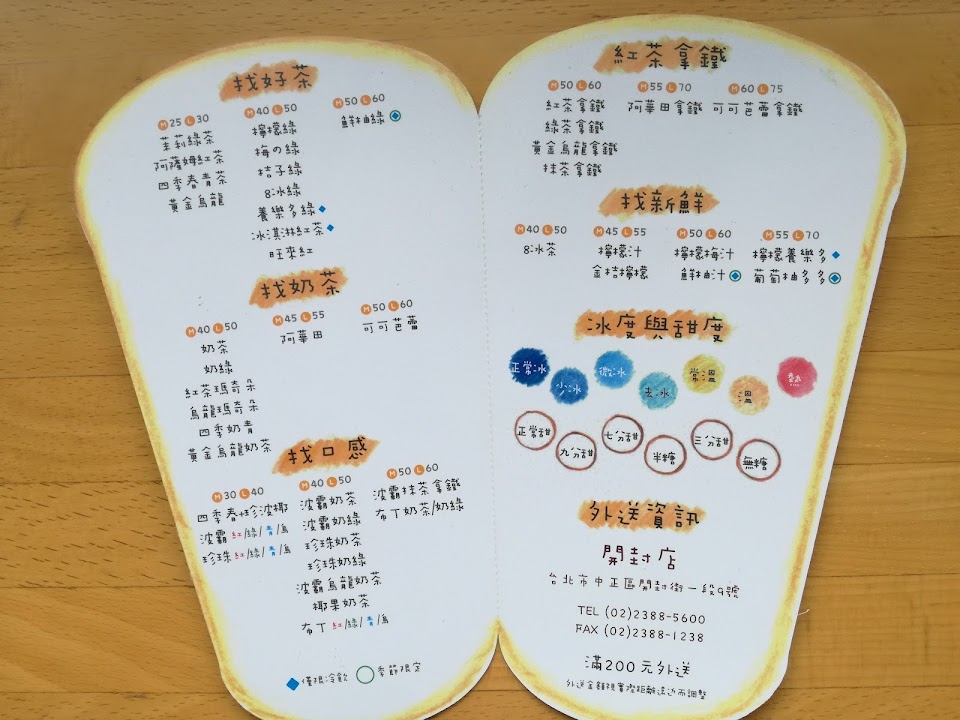 找好茶
M25 L30
茉莉綠茶
阿薩姆紅茶
四季春青茶
黃金烏龍
M40 L50
檸檬綠
梅の綠
桔子綠
8冰綠
養樂多綠
冰淇淋紅茶
旺來紅
M50 L60
鮮柚綠
找奶茶
M40 L50
奶茶
奶綠
紅茶瑪奇朵
烏龍瑪奇朵
四季奶青
黃金烏龍奶茶
M45 L55
阿華田
M50 L60
可可芭蕾
找口感
M30 L40
四季春+珍波椰
波霸 紅/綠/青/烏
珍珠 紅/綠/青/烏
M40 L50
波霸奶茶
波霸奶綠
珍珠奶茶
珍珠奶綠
波霸烏龍奶茶
椰果奶茶
布丁 紅/綠/青/烏
M50 L60
波霸抹茶拿鐵
布丁奶茶/奶綠
僅限冷飲 季節限定
紅茶拿鐵
M50 L60
紅茶拿鐵
綠茶拿鐵
黃金烏龍拿鐵
抹茶拿鐵
M55 L70
阿華田拿鐵
M60 L75
可可芭蕾拿鐵
找新鮮
M40 L50
8冰茶
M45 L55
檸檬汁
金桔檸檬
M50 L60
檸檬梅汁
鮮柚汁
M55 L70
檸檬養樂多
葡萄柚多多
冰度與甜度
正常冰 少冰 微冰 去冰 常溫 溫 熱
正常甜 九分甜 七分甜 半糖 三分甜 無糖
外送資訊
開封店
台北市中正區開封街一段9號
TEL (02)2388-5600
FAX (02)2388-1238
滿200元外送
外送金額視實際距離遠近而調整